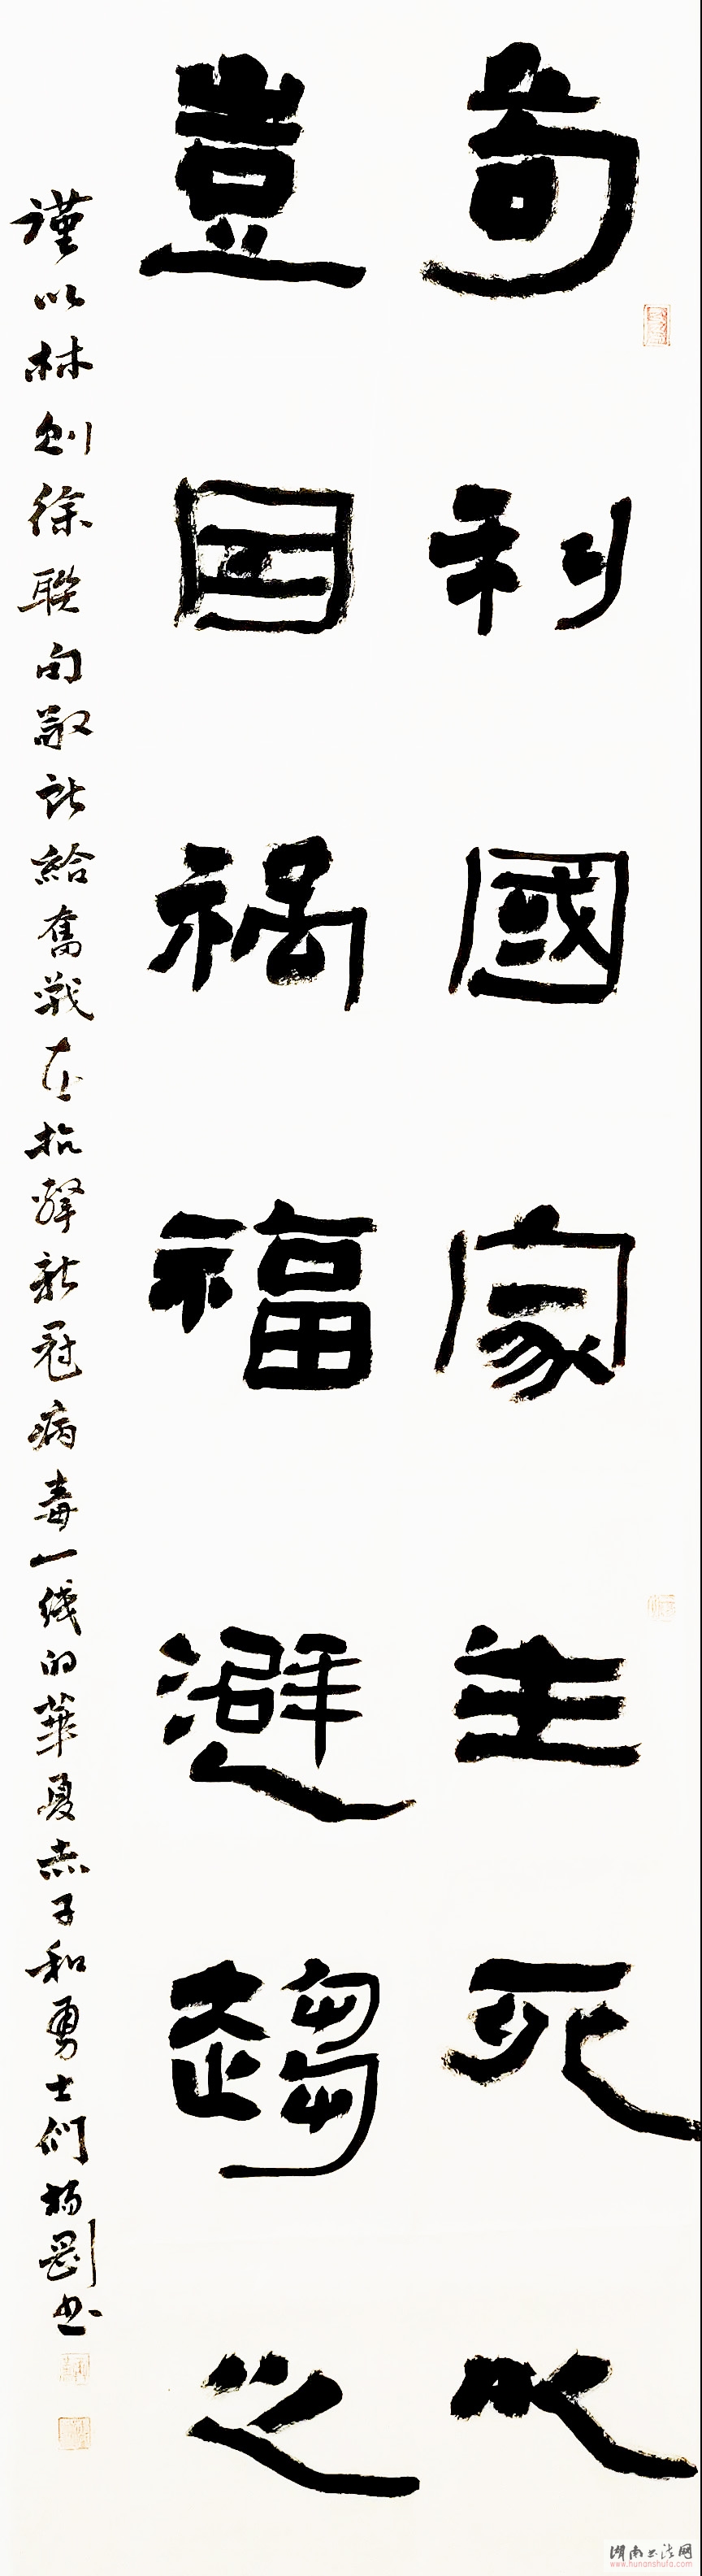 苟利國家生死以
豈因禍福避趨之
謹以林則徐聯句敬獻給奮戰在抗擊新冠病毒一綫的華夏赤子和勇士們 楊剛書
湖南书法网
www.hunanshufa.com